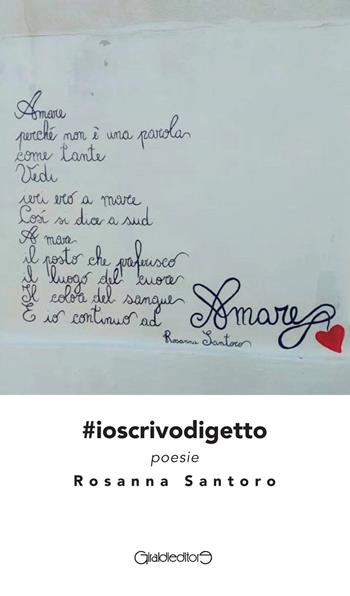 Amare
perché non è una parola
come tante
Vedi
ieri ero a mare
Così si dice a sud
A mare
il posto che preferisco
il luogo del cuore
Il color del sangue
E io continuo ad
Amare
Rosanna Santoro
#ioscrivodigetto
poesie
Rosanna Santoro
Giraldieditore